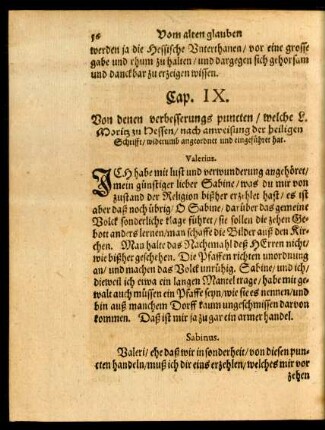 56 Vom alten glauben
werden ja die Hessische Vnterthanen / vor eine grosse
gabe vnd rhum zu halten / vnd dargegen sich gehorsam
vnd danckbar zu erzeigen wissen.
Cap. IX.
Von denen verbesserungs puncten / welche L.
Moritz zu Hessen / nach anweisung der heiligen
Schrifft / widerumb angeordnet vnd eingeführet hat.
Valerius.
ICH habe mit lust vnd verwunderung angehöret /
mein günstiger lieber Sabine / was du mir von
zustand der Religion bißher erzehlet hast / es ist
aber daß noch übrig / O Sabine, darüber das gemeine
Volck sonderliche klage führet / sie sollen die zehen Ge-
bott anders lernen / man schaffe die Bilder auß den Kir-
chen. Man halte das Nachtmahl deß HErren nicht /
wie bißher geschehen. Die Pfaffen richten vnordnung
an / vnd machen das Volck vnrühig. Sabine / vnd ich /
dieweil ich etwa ein langen Mantel trage / habe mit ge-
walt auch müssen ein Pfaffe seyn / wie sie es nennen / vnd
bin auß manchem Dorff kaum vngeschmissen darvon
kommen. Daß ist mir ja zu gar ein armer handel.
Sabinus.
Valeri / ehe daß wir in sonderheit / von diesen pun-
cten handeln / muß ich dir eins erzehlen / welches mir vor
zehen